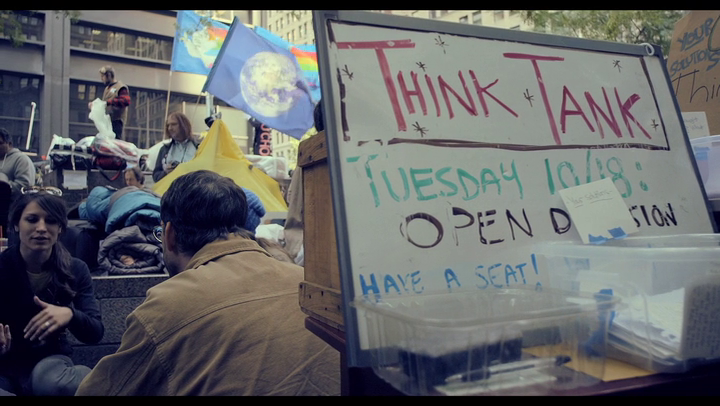 THINK TANK
TUESDAY 10/18:
OPEN D SION
HAVE A SEAT!
YOUR